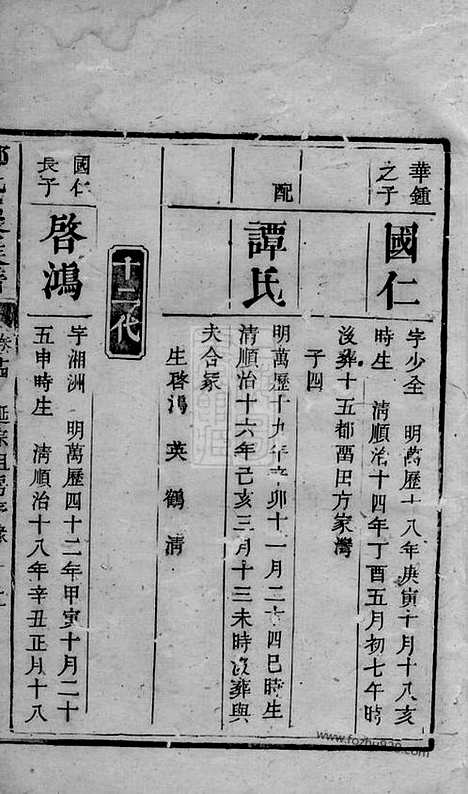 華鍾
之子
國仁
字少全 明萬歷十八年庚寅十月十八亥
時生 清順治十四年丁酉五月初七午時
沒葬十五都畱田方家灣
子四
配
譚氏
明萬歷十九年辛卯十一月二十四巳時生
清順治十六年己亥三月十三未時歿葬與
夫合冢
生啓鴻 英 鶴 清
十二代
國仁
長子
啓鴻
字湘洲 明萬歷四十二年甲寅十月二十
五申時生 清順治十八年辛丑正月十八
www.fozhu920.com